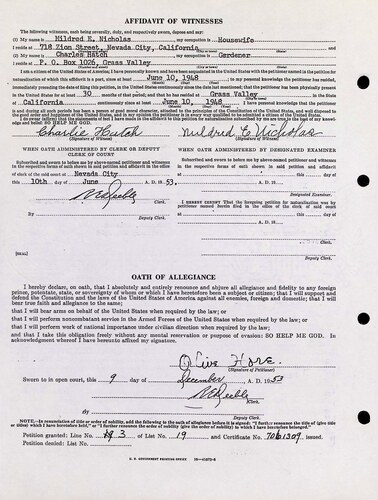 AFFIDAVIT OF WITNESSES
The following witnesses, each being severally, duly, and respectively sworn, depose and say:
(1) My name is Mildred E. Nicholas my occupation is Housewife
I reside at 718 Zion Street, Nevada City, California
(2) My name is Charles Hatch my occupation is Gardener
I reside at P. O. Box 1026, Grass Valley
I am a citizen of the United States of America. I have personally known and have been acquainted in the United States with the petitioner named in the petition for
naturalization of which this affidavit is a part, since at least June 10, 1948 to my personal knowledge the petitioner has resided,
immediately preceding the date of filing this petition, in the United States continuously since the date last mentioned; that the petitioner has been physically present
in the United States for at least 30 months of that period; and that he has resided at Grass Valley in the State
of California continuously since at least June 10, 1948 I have personal knowledge that the petitioner
is and during all such periods has been a person of good moral character, attached to the principles of the Constitution of the United States, and well disposed to
the good order and happiness of the United States, and in my opinion the petitioner is in every way qualified to be admitted a citizen of the United States.
Charlie Hatch Mildred E Nicholas
(Signature of Witness) (Signature of Witness)
WHEN OATH ADMINISTERED BY CLERK OR DEPUTY
CLERK OF COURT
WHEN OATH ADMINISTERED BY DESIGNATED EXAMINER
Subscribed and sworn to before me by above-named petitioner and witnesses
in the respective forms of oath shown in said petition and affidavit in the office
of clerk of the said court at Nevada City
this 10th day of June A. D. 1953,
Clerk.
By
Deputy Clerk.
[SEAL]
Subscribed and sworn to before me by above-named petitioner and witnesses
in the respective forms of oath shown in said petition and affidavit at
this day of
A. D. 19
Designated Examiner.
I HEREBY CERTIFY that the foregoing petition for naturalization was by
petitioner named herein filed in the office of the clerk of said court
this day of A. D. 19
Clerk.
By
Deputy Clerk.
OATH OF ALLEGIANCE
I hereby declare, on oath, that I absolutely and entirely renounce and abjure all allegiance and fidelity to any foreign
prince, potentate, state, or sovereignty of whom or which I have heretofore been a subject or citizen; that I will support and
defend the Constitution and the laws of the United States of America against all enemies, foreign and domestic; that I will
bear true faith and allegiance to the same;
that I will bear arms on behalf of the United States when required by the law; or
that I will perform noncombatant service in the Armed Forces of the United States when required by the law; or
that I will perform work of national importance under civilian direction when required by the law;
and that I take this obligation freely without any mental reservation or purpose of evasion: SO HELP ME GOD. In
acknowledgment whereof I have hereunto affixed my signature.
Olive Hore
(Signature of Petitioner)
Sworn to in open court, this 9 day of December, A. D. 1953
Clerk.
By
Deputy Clerk.
NOTE.—In renunciation of title or order of nobility, add the following to the oath of allegiance before it is signed: "I further renounce the title of (give title
or titles) which I have heretofore held," or "I further renounce the order of nobility (give the order of nobility) to which I have heretofore belonged."
Petition granted: Line No. 3 of List No. 19 and Certificate No. 7061309 issued.
Petition denied: List No.
U. S. GOVERNMENT PRINTING OFFICE